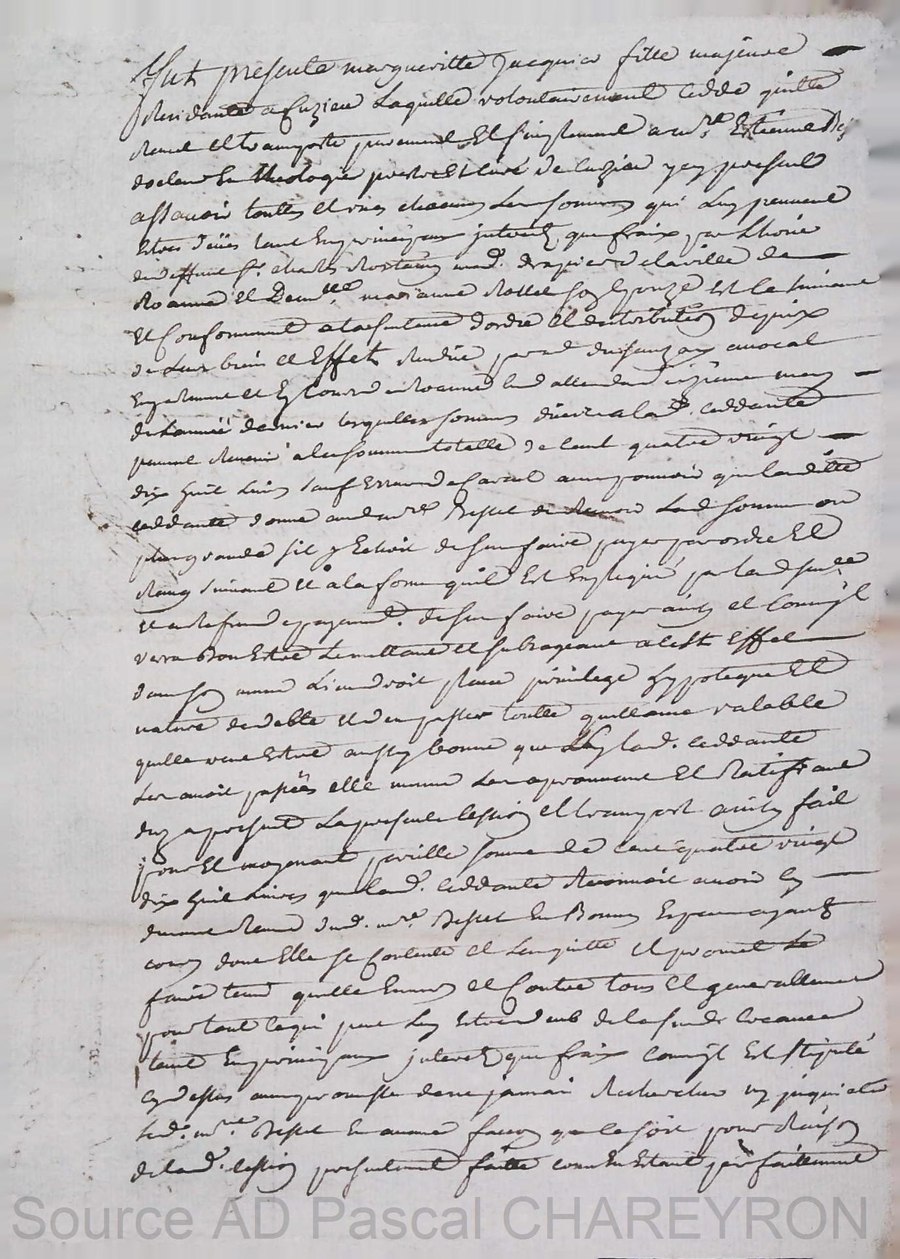 Fut presente margueritte Jacquier fille majeure
Residante a Cuzieu Laquelle volontairement cedde quitte
Remet et transporte purement Et simplement a mre Estienne
docteur En theologie prestre et curé de Cuzieu ycy present
assavoir touttes et unes chacunes Les sommes qui Luy peuvent
Estres dües tant En principaux jnterets que fraix par
de deffunt Sr. charles mard. drapier de la ville de
Roanne Et Demlle marianne son Epouze Et ce suivant
Et Conformement a la sentence d'ordre Et distribution du prix
de Leurs biens et Effets Rendüe par advocat
En parlement et En Cour de Roanne may
de Lannée derniere lesquelles sommes a lad. ceddante
peuvent Revenir a la somme totalle de Cent quatre vingt
dix huit Livres sauf Erreur de Calcul avec pouvoir que lad.
ceddante donne aud. mre. de Lad. somme ou
plus grande sil y Echoit de sen faire payer par ordre Et
Rang suivant Et a la forme quil Est Expliqué par lad. sence
Et a Refus de payemt. de sen faire payer ainsy et Comme jl
verra bon Estre Le mettant et subrogeant a cest Effet
dans son meme Lieu droit place privilege hypoteque Et
nature de debte Et den passer toutte quittance valable
quelle veut Estre aussy bonne que sy lad. ceddante
Les avoit passées elle meme Les approuvant Et Ratiffiant
dez a present La presente cession et transport ainsy fait
pour Et moyenant pareille somme de cent quatre vingt
dix huit Livres que lad. ceddante Reconnoit avoir Eu
Receu dud. mre. En Bonnes Especes ayant
cours dont Elle se Contente et Len quitte Et promet Le
faire tenir quitte Envers et Contre tous Et generallement
pour tout ce qui peut Luy Estre deub
tant En principaux jnterets que fraix Comme jl Est stipulé
cy dessus avec promesse de ne jamais Rechercher ny jnquieter
led. mre. En aucune facon que ce soit pour Raison
de lad. cession presentement faitte comme Etant parfaittement
Source AD Pascal CHAREYRON